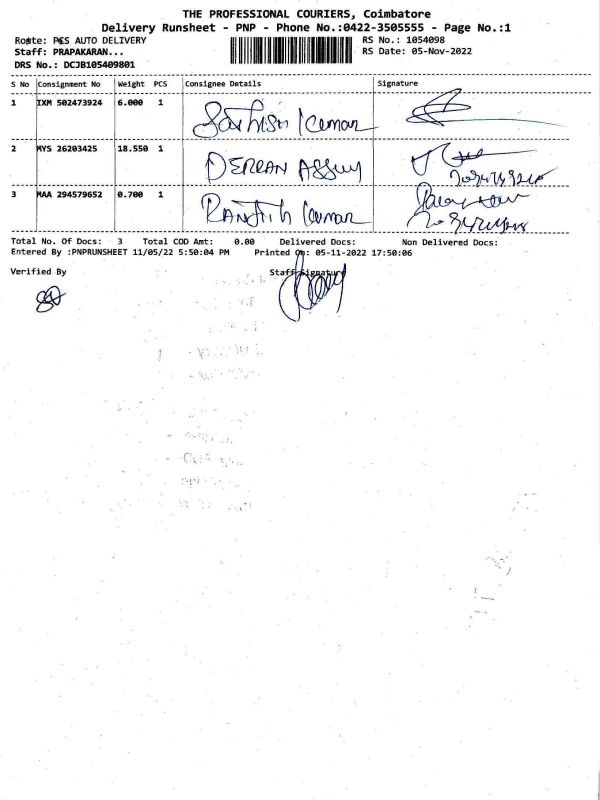 THE PROFESSIONAL COURIERS, Coimbatore
Delivery Runsheet - PNP - Phone No.:0422-3505555 - Page No.:1
Route: PCS AUTO DELIVERY
RS No.: 1054098
Staff: PRAPAKARAN...
RS Date: 05-Nov-2022
DRS No.: DCJB105409801
S No Consignment No Weight PCS Consignee Details Signature
1 IXM 502473924 6.000 1 Sathish Kumar
2 MYS 26203425 18.550 1
3 MAA 294579652 0.700 1 RANJITH Kumar
Total No. Of Docs: 3 Total COD Amt: 0.00 Delivered Docs: Non Delivered Docs:
Entered By :PNPRUNSHEET 11/05/22 5:50:04 PM Printed On: 05-11-2022 17:50:06
Verified By Staff Signature